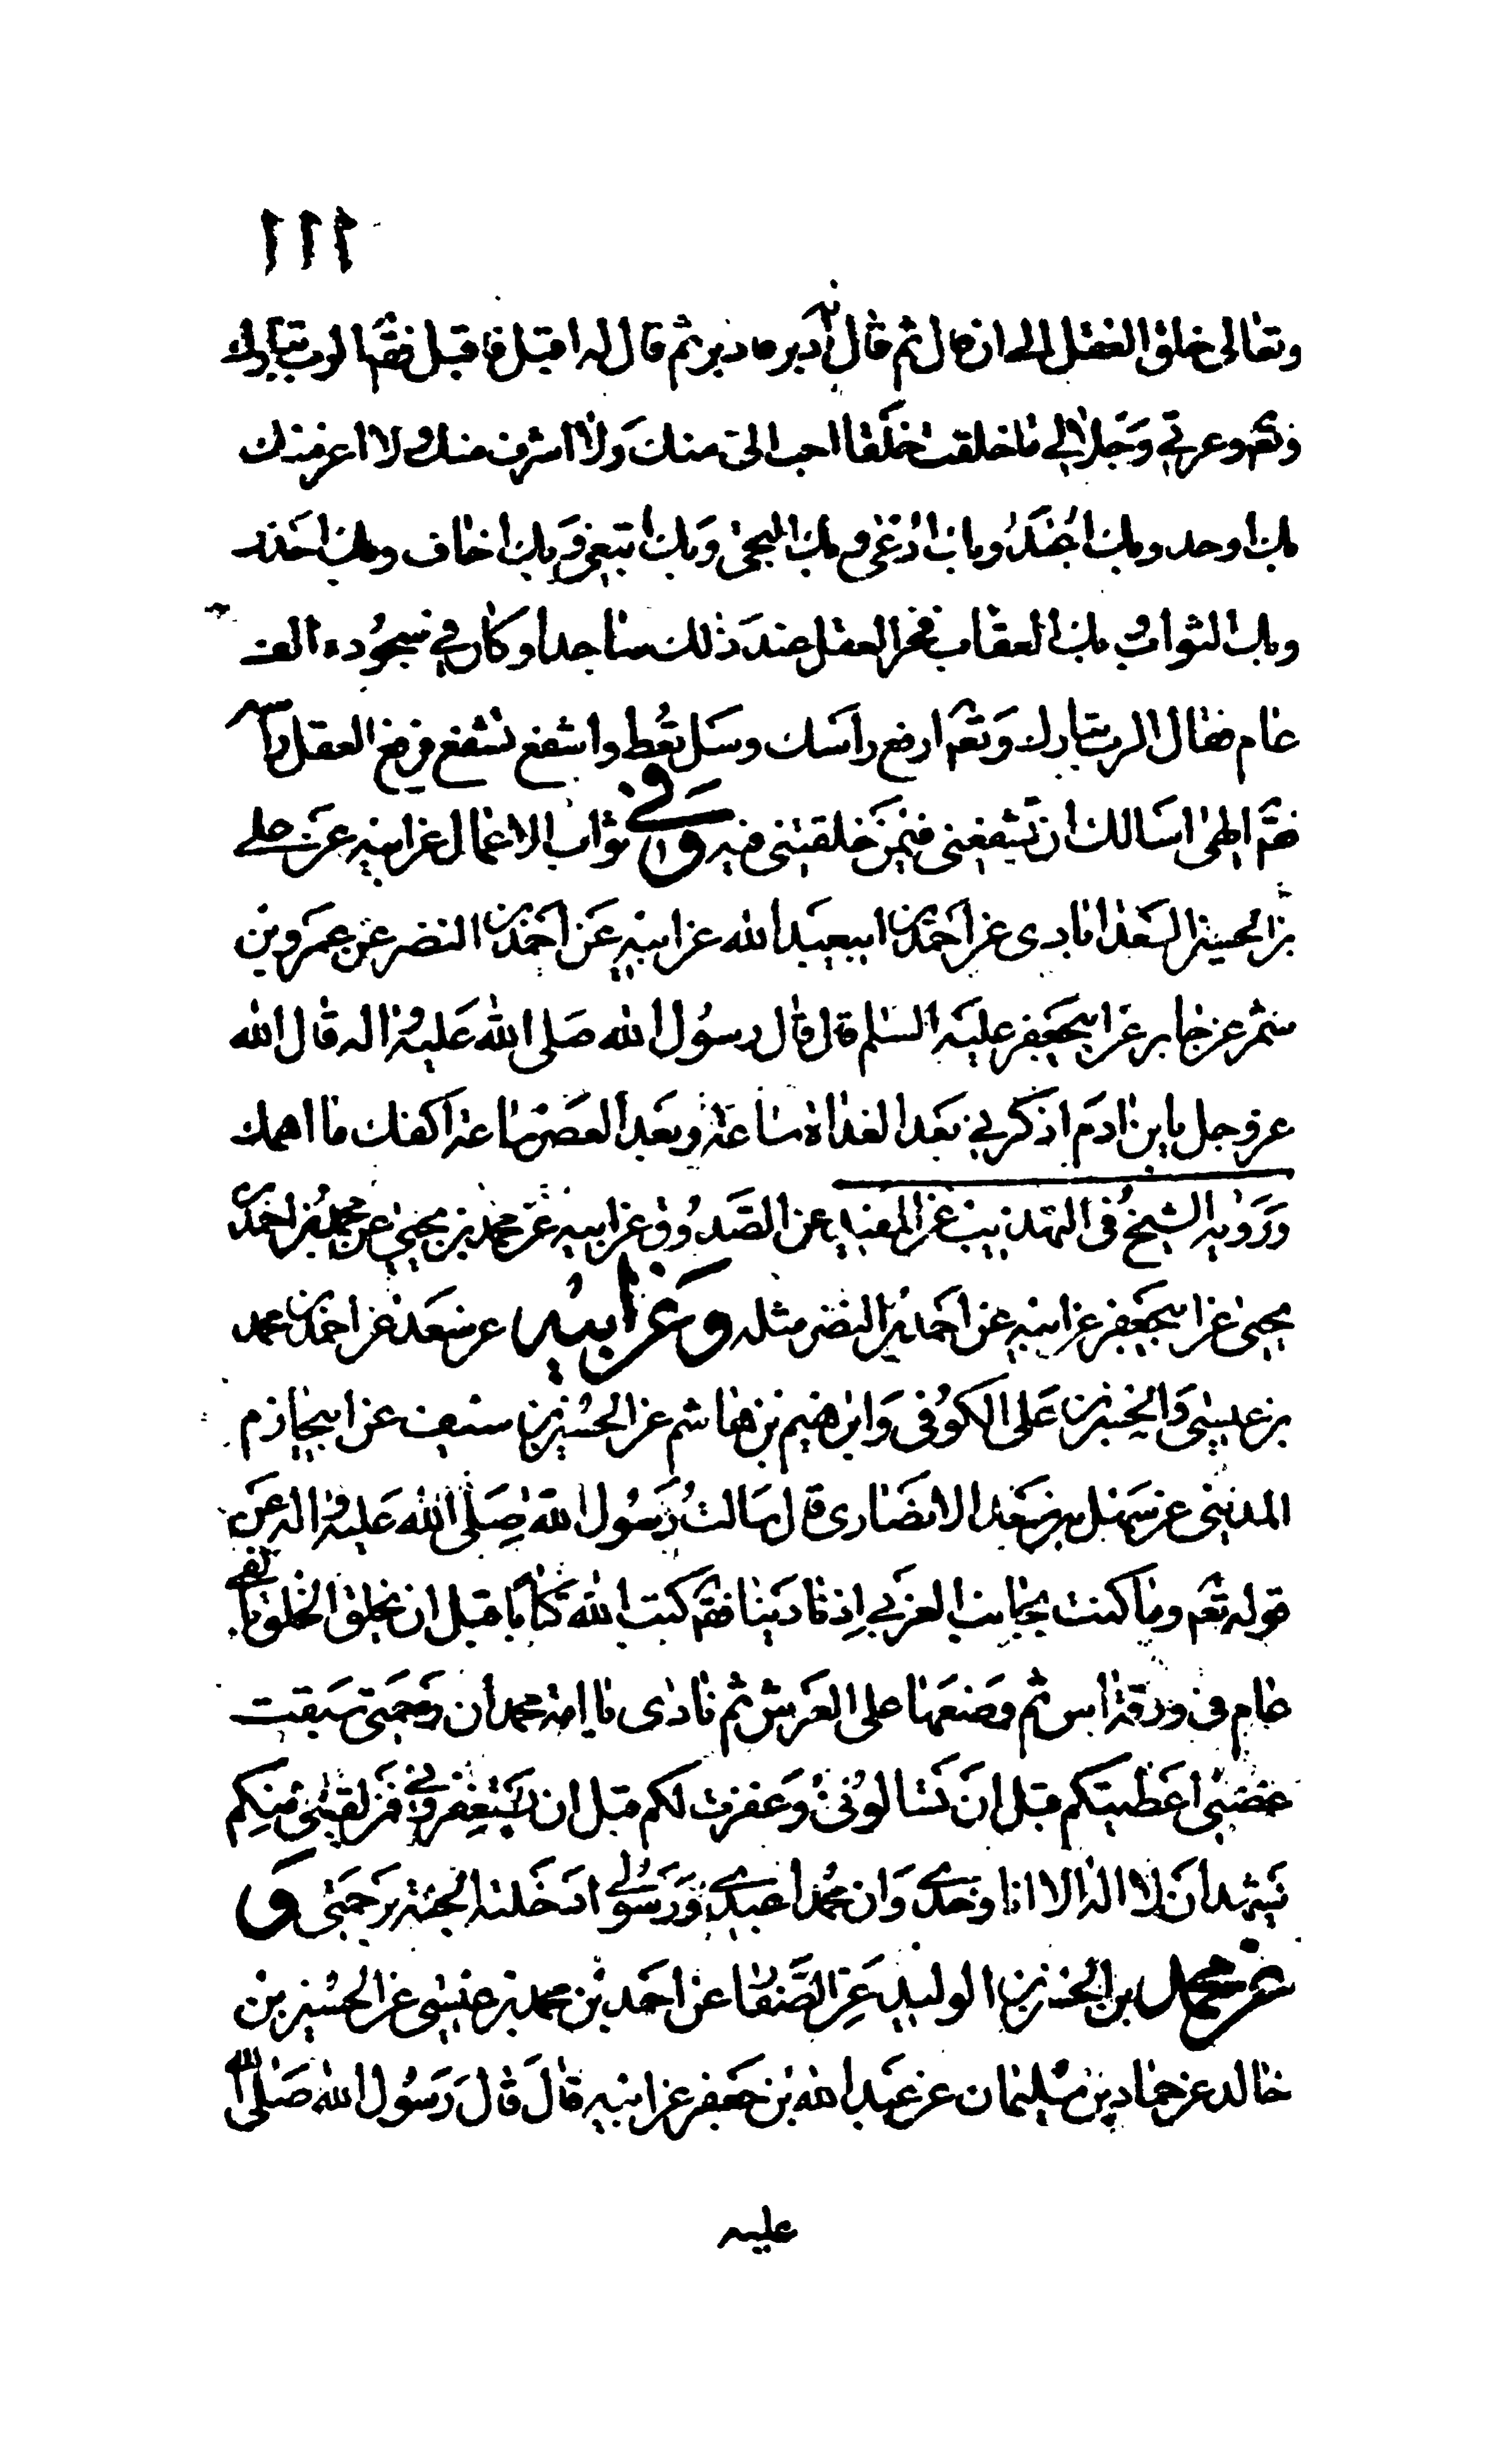 ١١١
وتعالى خلق العقل الى ان قال ثم قال له ادبر فادبر ثم قال له اقبل فاقبل فقال الرب تبارك
وتعالى وعزتي وجلالي ما خلقت خلقا احب الي منك ولا اشرف منك ولا اعز منك
بك اوحد وبك اعبد وبك ادعى وبك ارتجى وبك ابتغى وبك اخاف وبك احذر
وبك الثواب وبك العقاب فخر العقل عند ذلك ساجدا وكان في سجوده الف
عام فقال الرب تبارك وتعم ارفع راسك وسل تعط واشفع تشفع فرفع العقل راسه
فقم الهى اسالك ان تشفعنى فيمن خلقتنى فيه وفي ثواب الاعمال عن ابيه عن علي
بن الحسين السعدابادى عن احمد بن ابيعبد الله عن ابيه عن احمد بن النضر عن عمرو بن
شمر عن جابر عن ابيجعفر عليه السلم قال قال رسول الله صلى الله عليه واله قال الله
عز وجل يا بن ادم اذكرني بعد الغداة ساعة وبعد العصر ساعة اكفك ما اهمك
ورواه الشيخ فى التهذيب عن المفيد عن الصدوق عن ابيه عن محمد بن يحيى عن محمد بن احمد بن
يحيى عن ابيجعفر عن ابيه عن احمد بن النضر مثله وعن ابيه عن سعد عن احمد بن محمد
بن عيسى والحسن بن على الكوفى وابرهيم بن هاشم عن الحسين بن سيف عن ابيحازم
المدينى عن سهل بن سعد الانصارى قال سالت رسول الله صلى الله عليه واله عن
قوله تعم وما كنت بجانب الغربي اذ نادينا فقم كتب الله كتابا قبل ان يخلق الخلق بالفى
عام فى ورقة اس ثم وضعها على العرش ثم نادى يا امة محمد ان رحمتى سبقت
غضبى اعطيتكم قبل ان تسالونى وغفرت لكم قبل ان تستغفرونى فمن لقينى منكم
يشهد ان لا اله الا انا وحدي وان محمدا عبدي ورسولي ادخلته الجنة برحمتى و
عن محمد بن الحسن بن الوليد عن الصفار عن احمد بن محمد بن عيسى عن الحسين بن
خالد عن حماد بن سليمان عن عبد الله بن جعفر عن ابيه قال قال رسول الله صلى الله
عليه